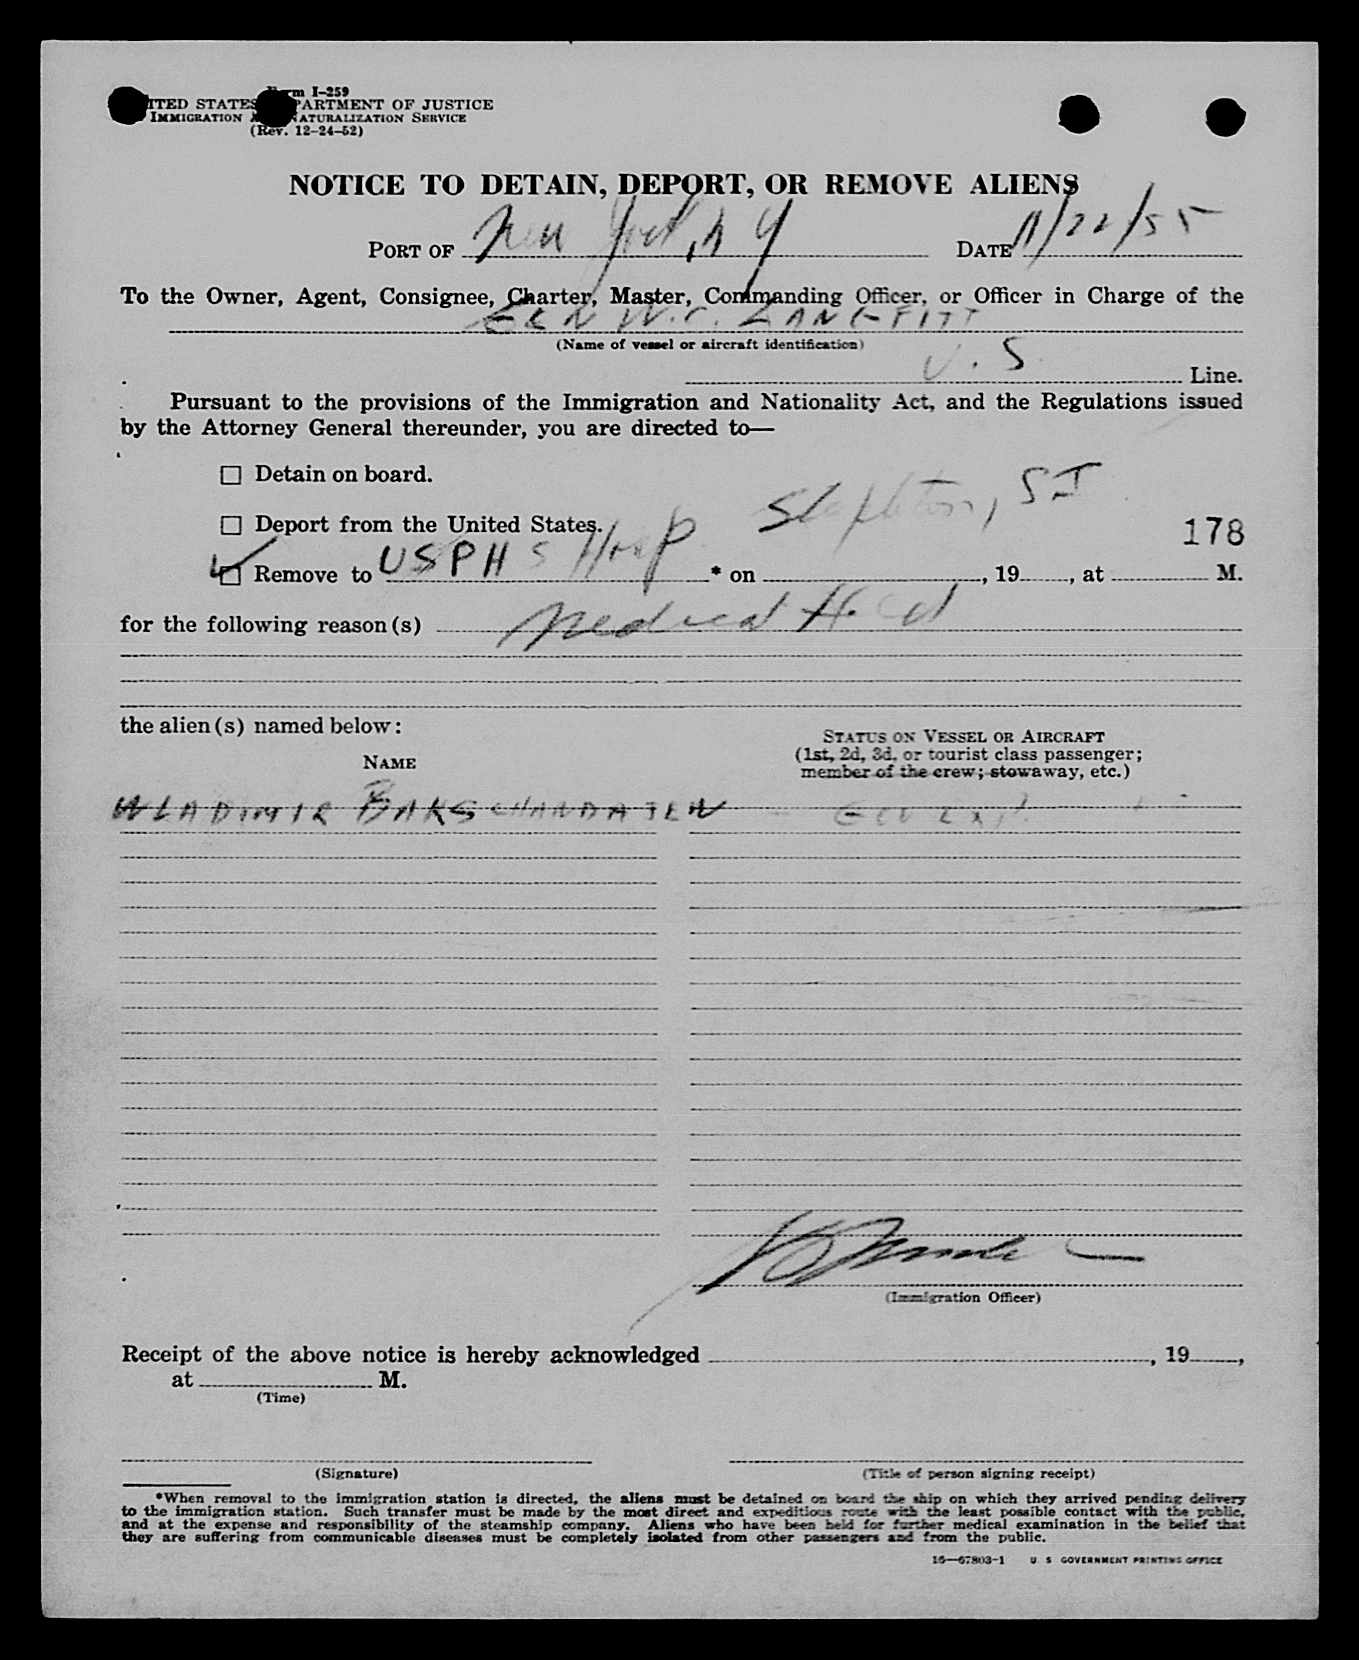 Form I-259
UNITED STATES DEPARTMENT OF JUSTICE
IMMIGRATION AND NATURALIZATION SERVICE
(Rev. 12-24-52)
NOTICE TO DETAIN, DEPORT, OR REMOVE ALIENS
PORT OF New York, N Y DATE 11/22/55
To the Owner, Agent, Consignee, Charter, Master, Commanding Officer, or Officer in Charge of the
GEN W.C. LANGFITT
(Name of vessel or aircraft identification)
U.S Line.
Pursuant to the provisions of the Immigration and Nationality Act, and the Regulations issued
by the Attorney General thereunder, you are directed to—
☐ Detain on board.
Stapleton, SI
☐ Deport from the United States.
178
☑ Remove to USPHS Hosp * on , 19 , at M.
for the following reason(s) Medical Hold
the alien(s) named below:
NAME
STATUS ON VESSEL OR AIRCRAFT
(1st, 2d, 3d, or tourist class passenger;
member of the crew; stowaway, etc.)
WLADIMIR BAKSCHANDAJEW
(Immigration Officer)
Receipt of the above notice is hereby acknowledged , 19 ,
at M.
(Time)
(Signature) (Title of person signing receipt)
*When removal to the immigration station is directed, the aliens must be detained on board the ship on which they arrived pending delivery
to the immigration station. Such transfer must be made by the most direct and expeditious route with the least possible contact with the public,
and at the expense and responsibility of the steamship company. Aliens who have been held for further medical examination in the belief that
they are suffering from communicable diseases must be completely isolated from other passengers and from the public.
16—67803-1 U S GOVERNMENT PRINTING OFFICE